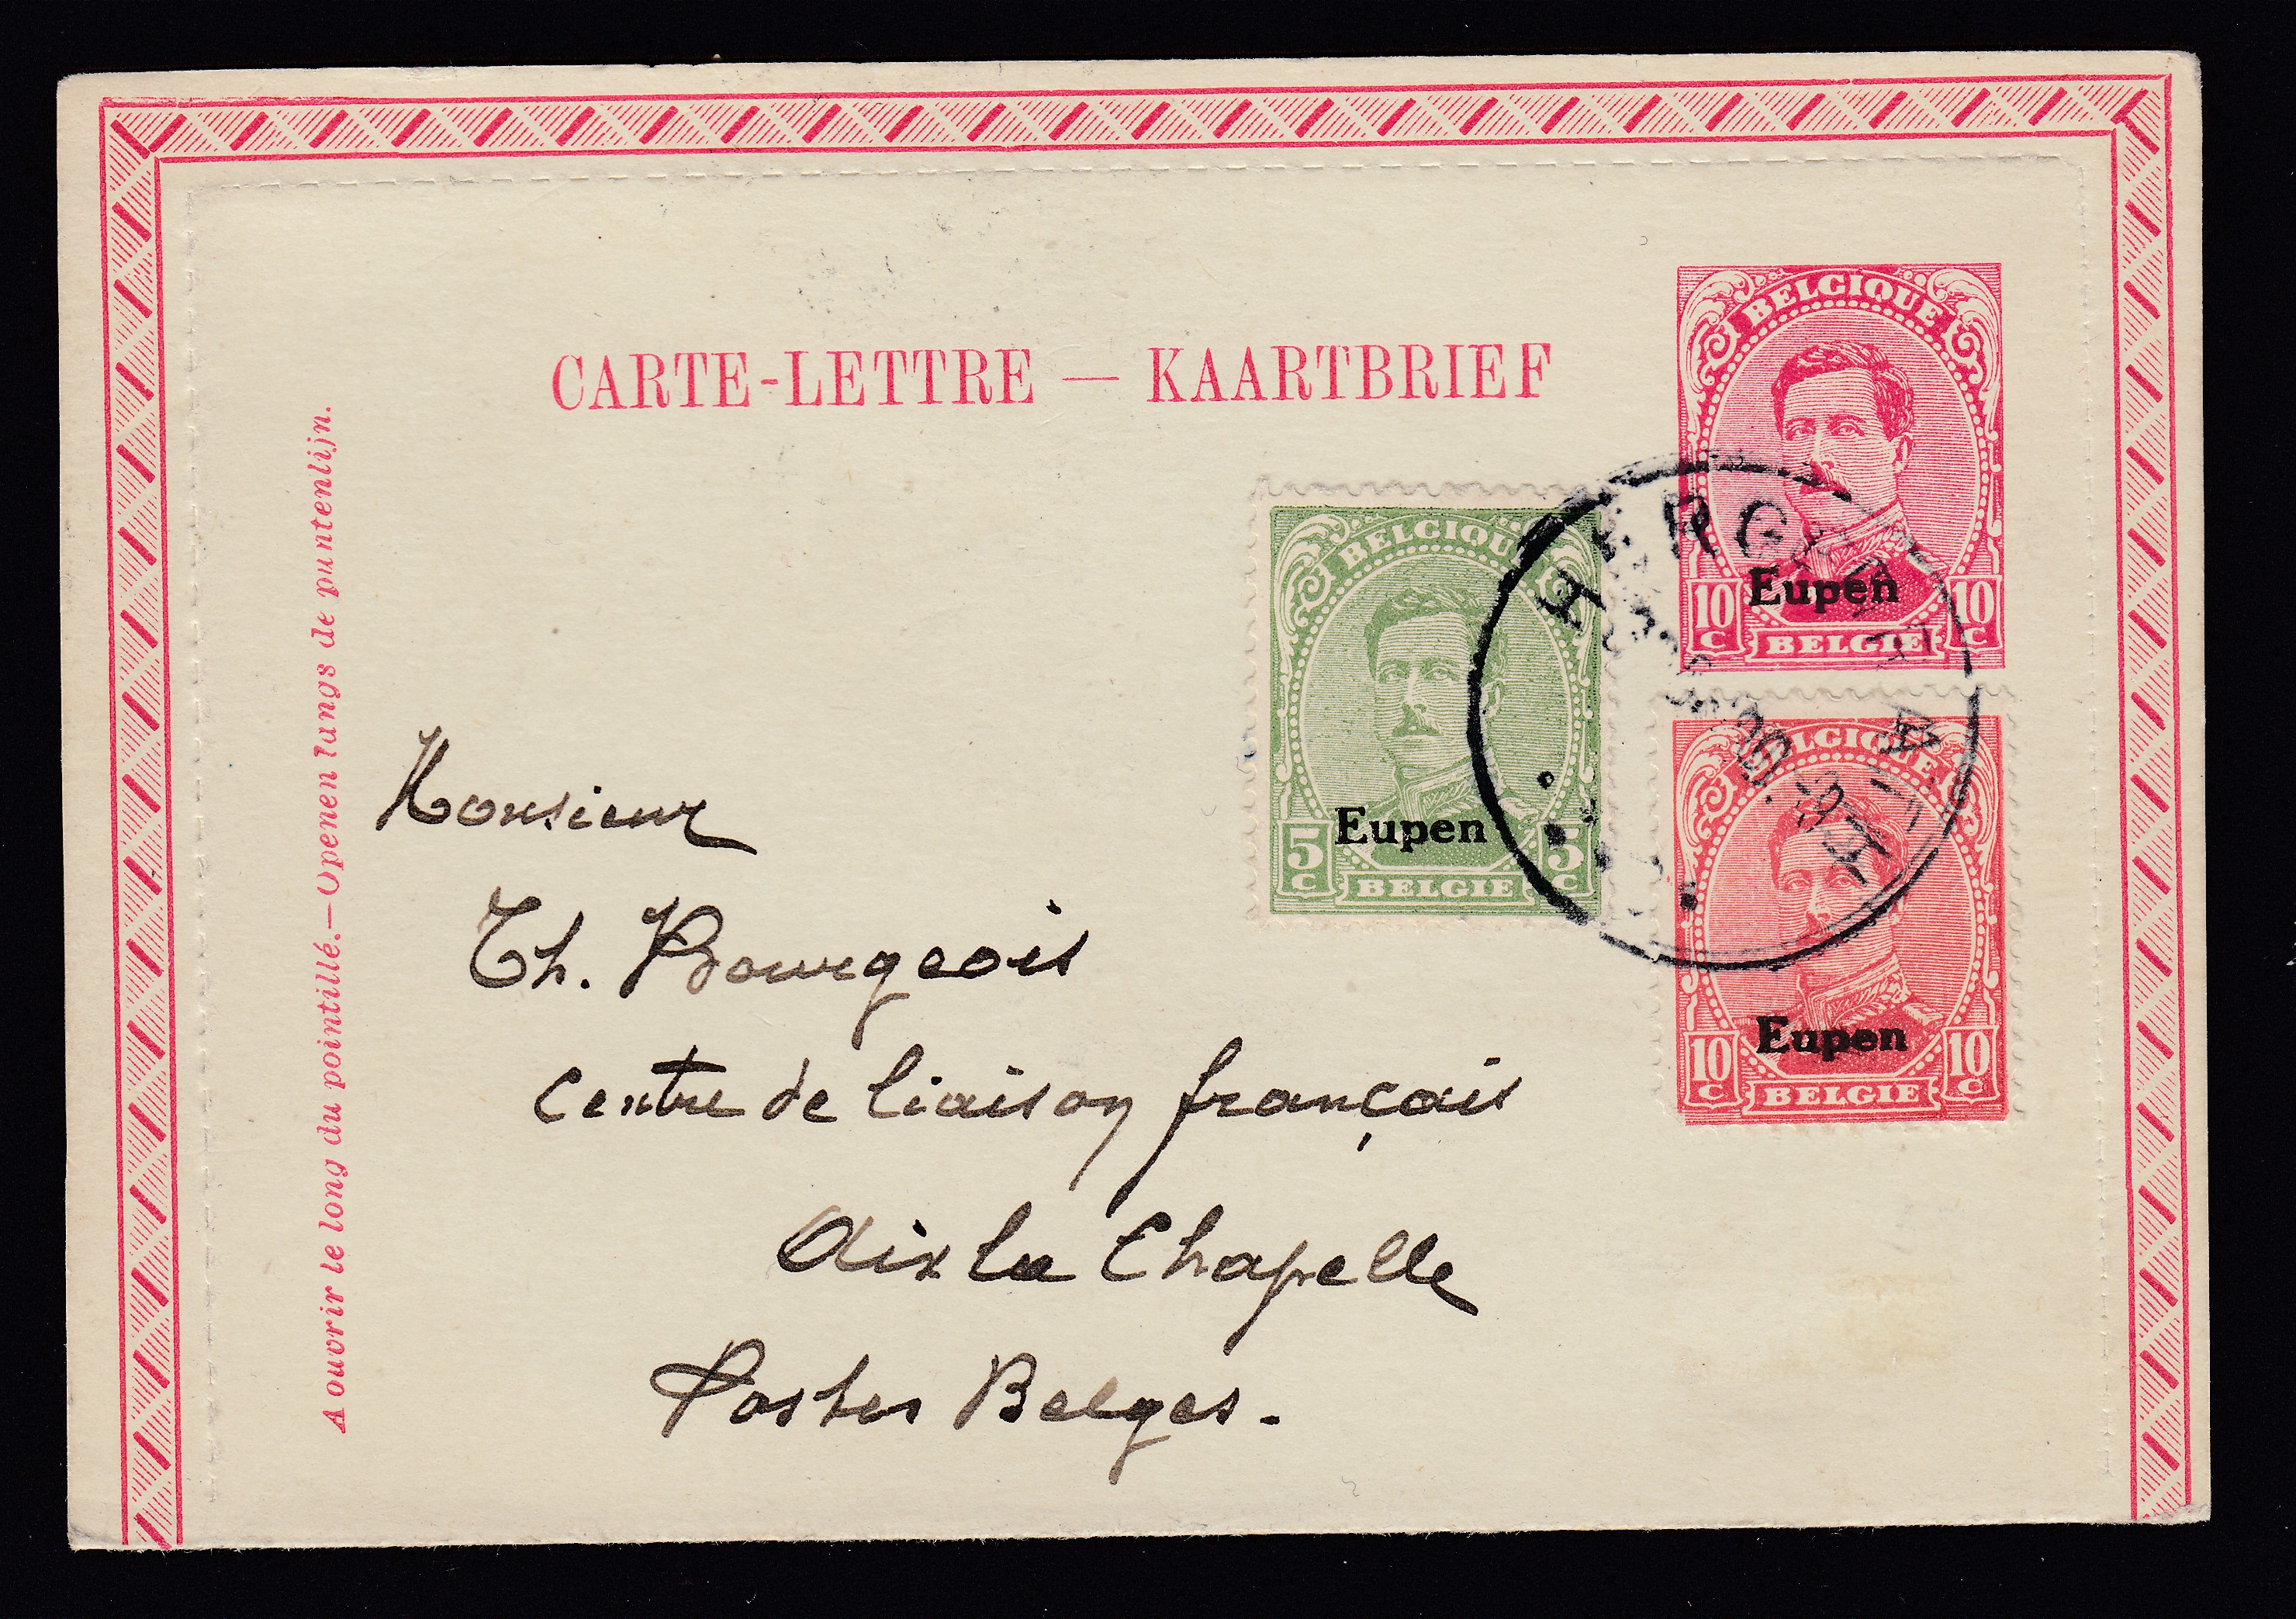 CARTE-LETTRE — KAARTBRIEF
A ouvrir le long du pointillé.—Openen langs de puntenlijn.
BELGIQUE
Eupen
10 C 10 C
BELGIE
BELGIQUE
Eupen
5 C 5 C
BELGIE
BELGIQUE
Eupen
10 C 10 C
BELGIE
Monsieur
Th. Bourgeois
Centre de liaison français
Aix la Chapelle
Postes Belges.